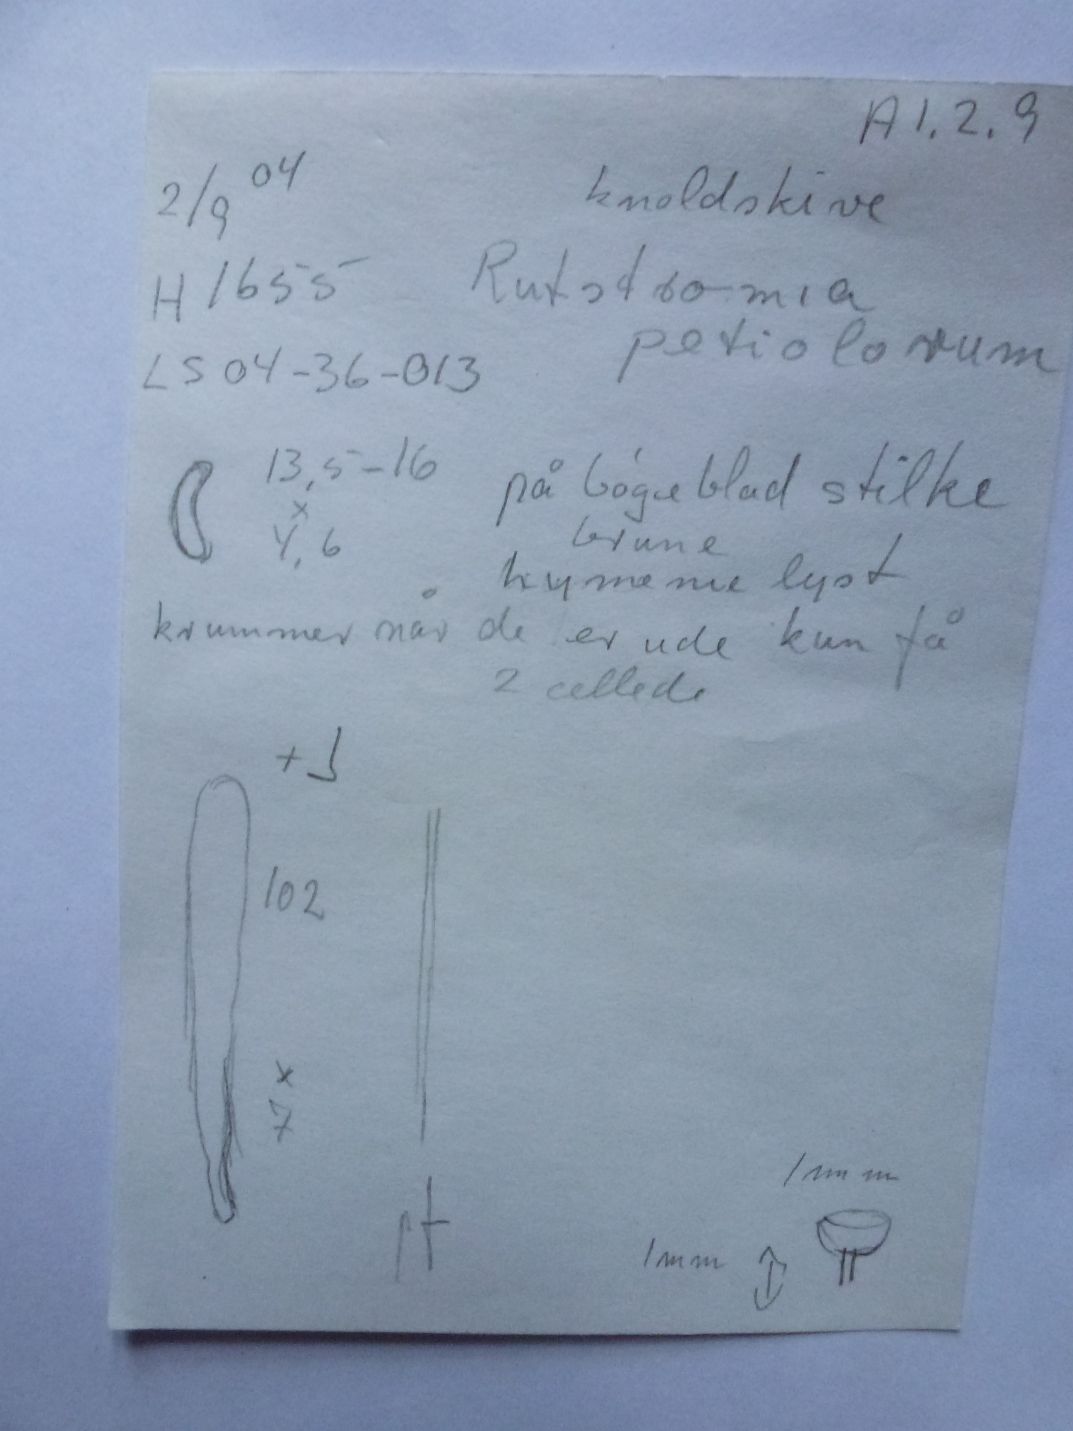 A 1.2.9
2/9 04
knoldskive
H 1655
Rutstromia
petiolorum
LS 04-36-013
13,5-16
x
4,6
på bögeblad stilke
brune
hymenie lyst
krummer når de er ude kun få
2 cellede
+J
102
x
7
1mm
1mm